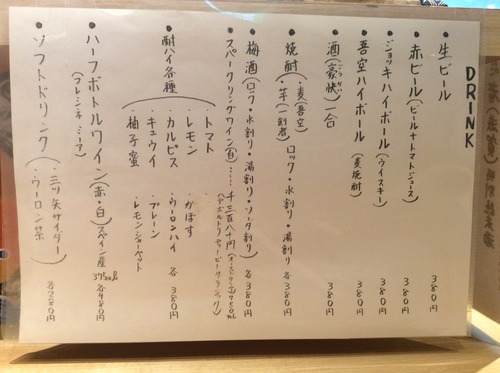 DRINK
・生ビール 380円
・赤ビール（ビール+トマトジュース） 380円
・ジョッキハイボール（ウイスキー） 380円
・吾空ハイボール（麦焼酎） 380円
・酒（豪快）一合 380円
ごうかい
・焼酎（・麦（吾空）
・芋（一刻者） ロック・水割り・湯割り 各380円
・梅酒（ロック・水割り・湯割り・ソーダ割り） 各380円
・スパークリングワイン（白）…… 千三百八十円
750ml
・酎ハイ各種
・トマト ・かぼす
・レモン ・ウーロンハイ 各380円
・カルピス ・プレーン
・キュウイ ・レモンシャーベット
・柚子蜜
・ハーフボトルワイン（赤・白）スペイン産 375ml 各980円
・ソフトドリンク（・三ツ矢サイダー
・ウーロン茶） 各280円